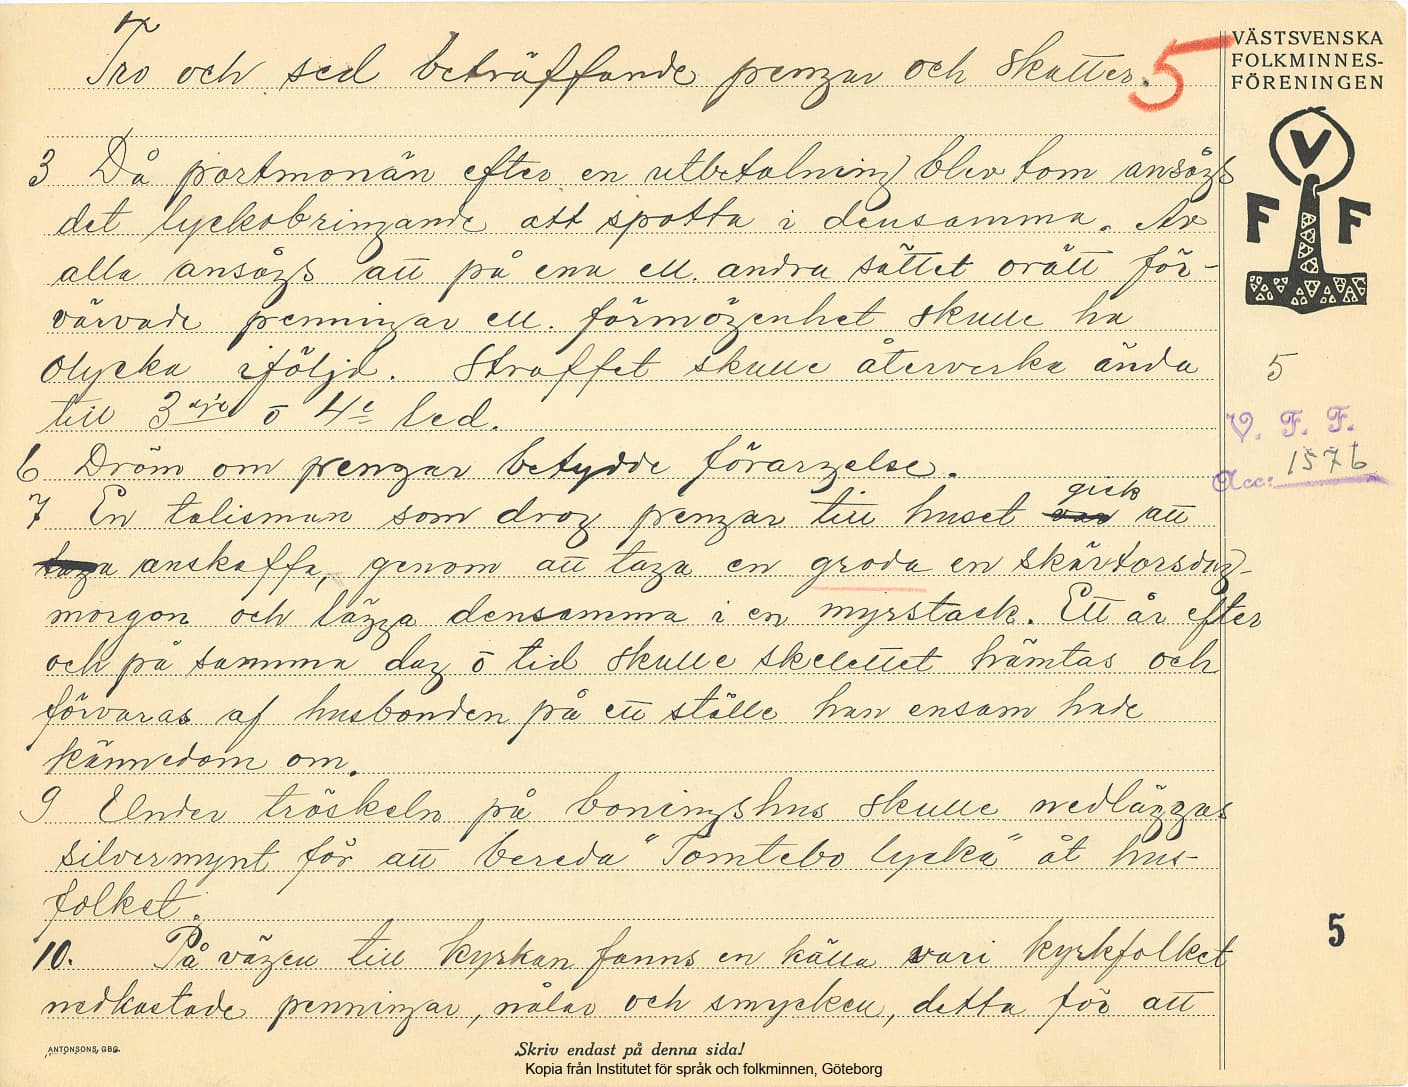 Tro och sed beträffande pengar och skatter.
5
VÄSTSVENSKA
FOLKMINNES-
FÖRENINGEN
V
F F
3 Då portmonän efter en utbetalning blev tom ansågs
det lyckobringande att spotta i densamma. Av
alla ansågs att på ena ell. andra sättet orätt för-
värvade penningar ell. förmögenhet skulle ha
olycka iföljd. Straffet skulle återverka ända
till 3dje o 4e led.
5
V. F. F.
Acc: 1576
6 Dröm om pengar betydde förargelse.
7 En talisman som drog pengar till huset var gick att
taga anskaffa, genom att taga en groda en skärtorsdag-
morgon och lägga densamma i en myrstack. Ett år efter
och på samma dag o tid skulle skelettet hämtas och
förvaras af husbonden på ett ställe han ensam hade
kännedom om.
9 Under tröskeln på boningshus skulle nedläggas
silvermynt för att bereda "Tomtebo lycka" åt hus-
folket.
10. På vägen till kyrkan fanns en källa vari kyrkfolket
nedkastade penningar, nålar och smycken, detta för att
5
ANTONSONS, GBG.
Skriv endast på denna sida!
Kopia från Institutet för språk och folkminnen, Göteborg